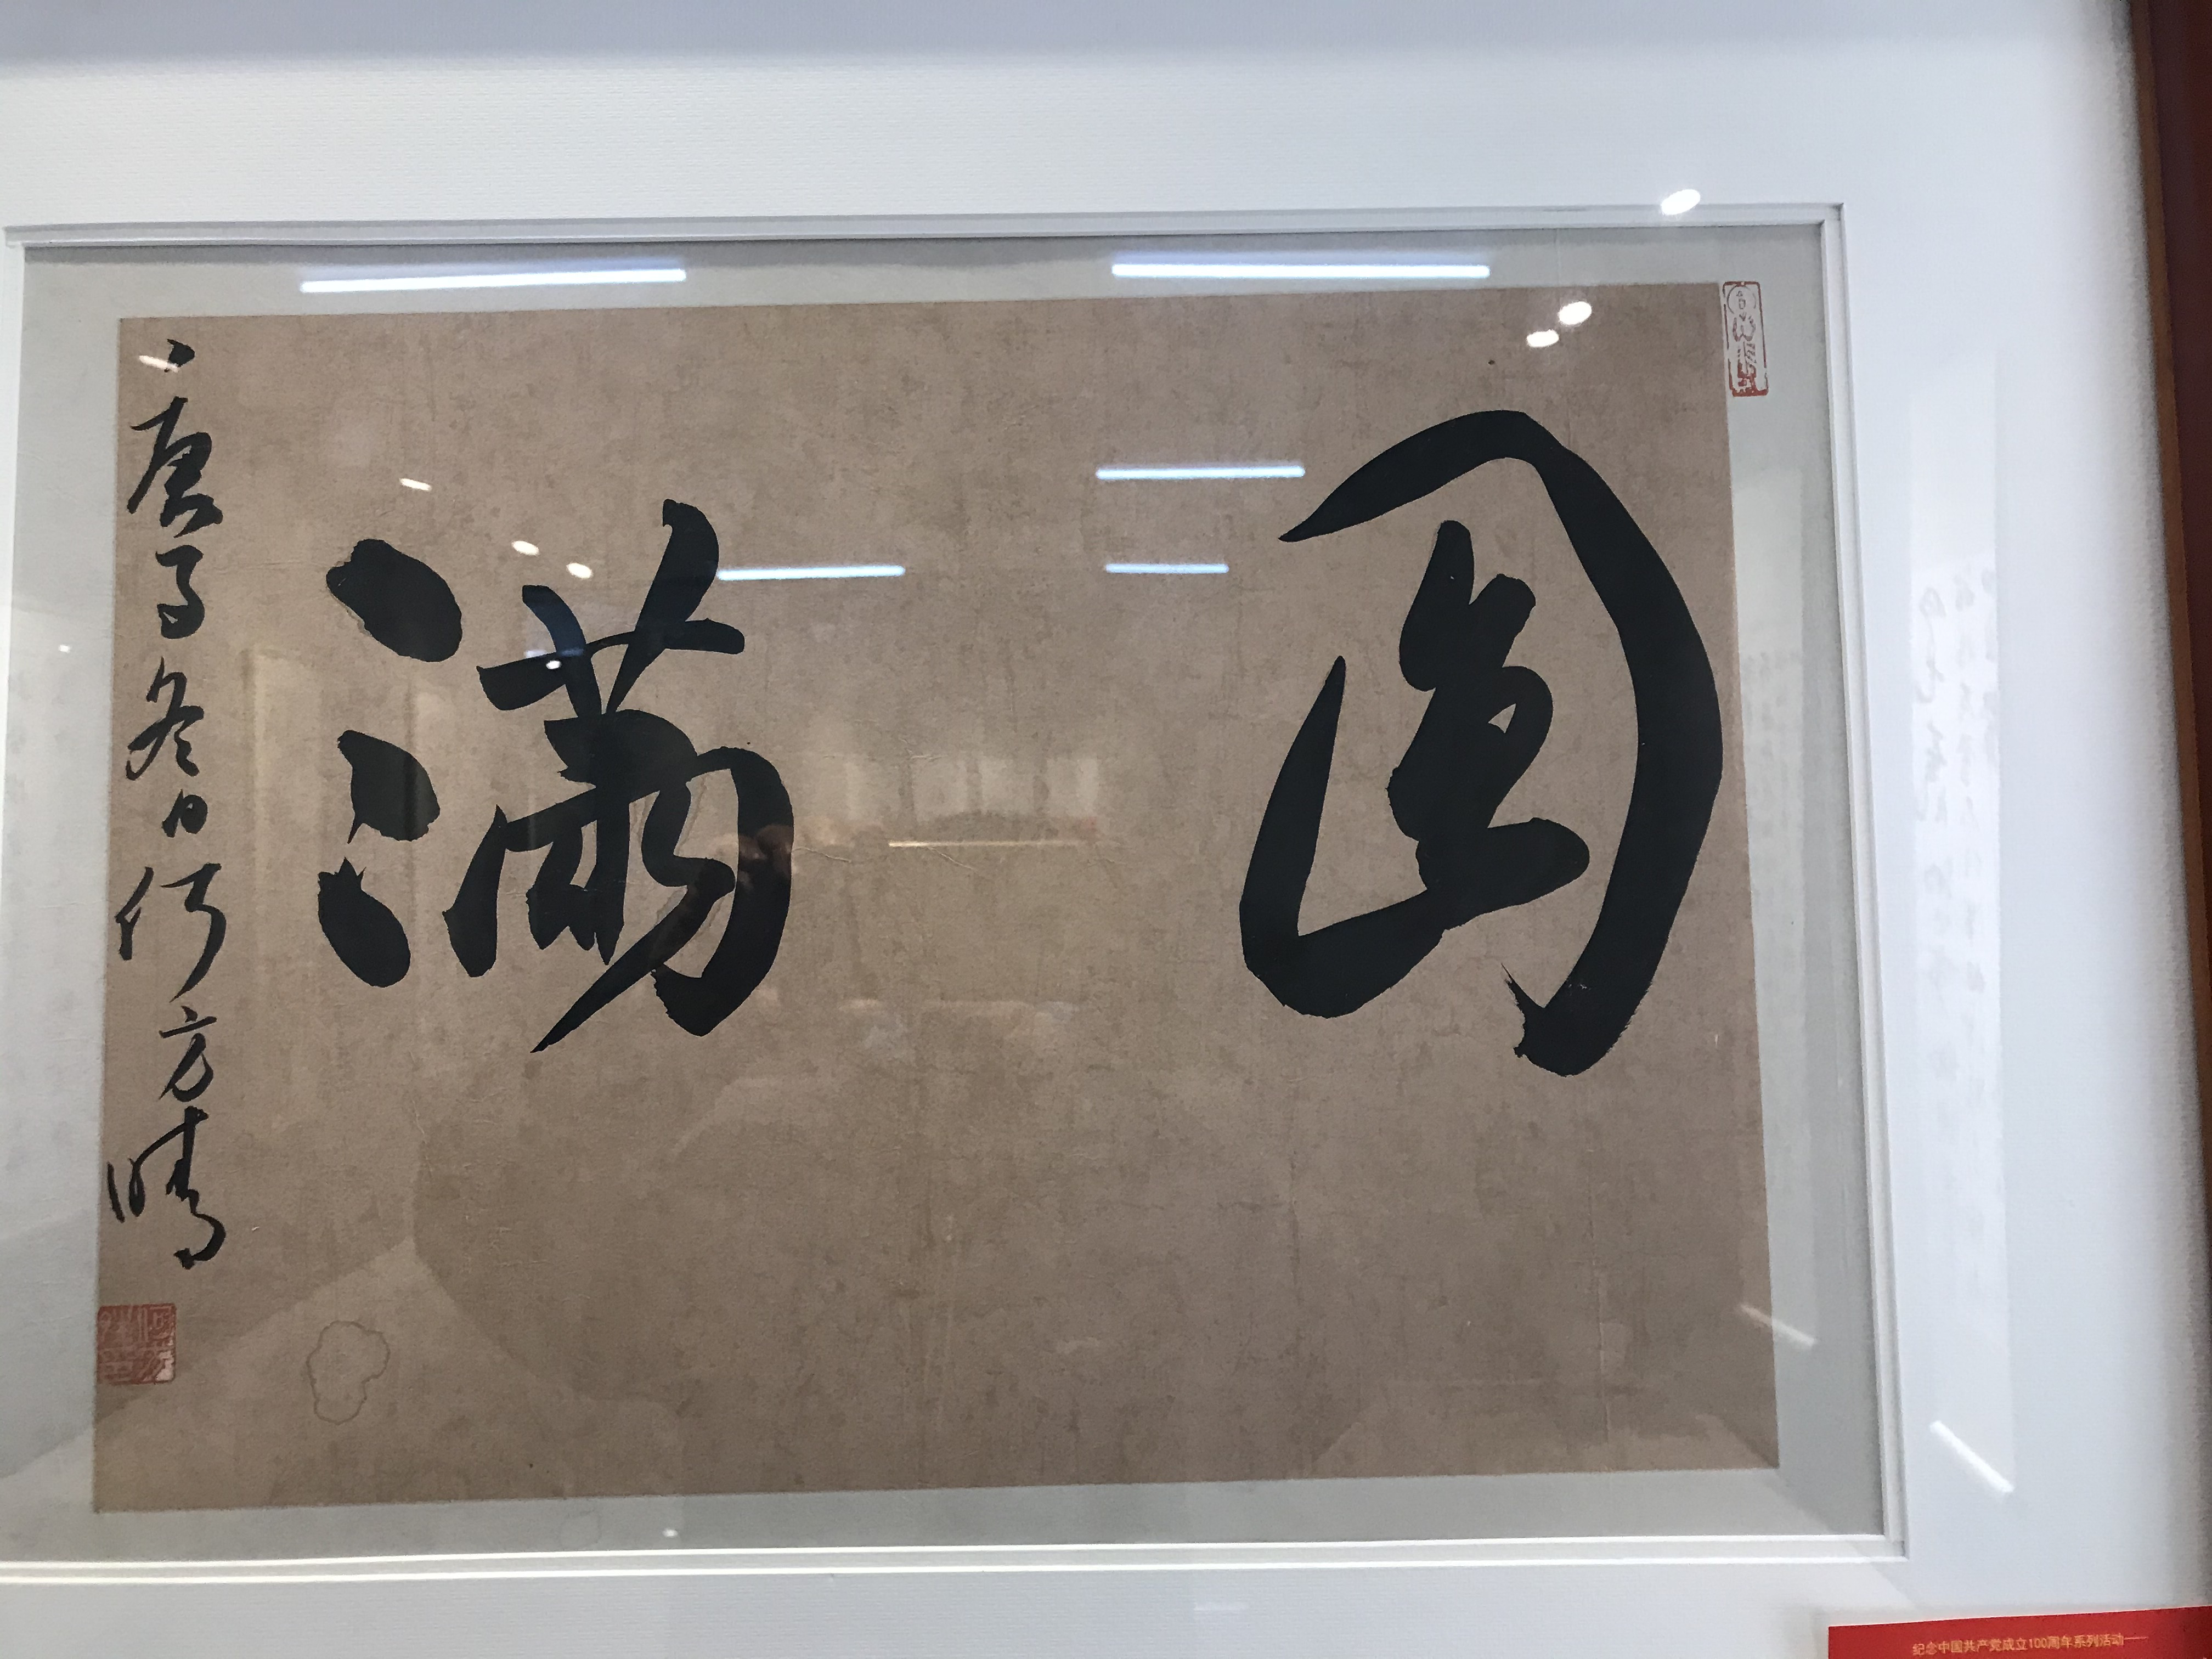 圆满
庚子冬日何方晴
纪念中国共产党成立100周年系列活动——